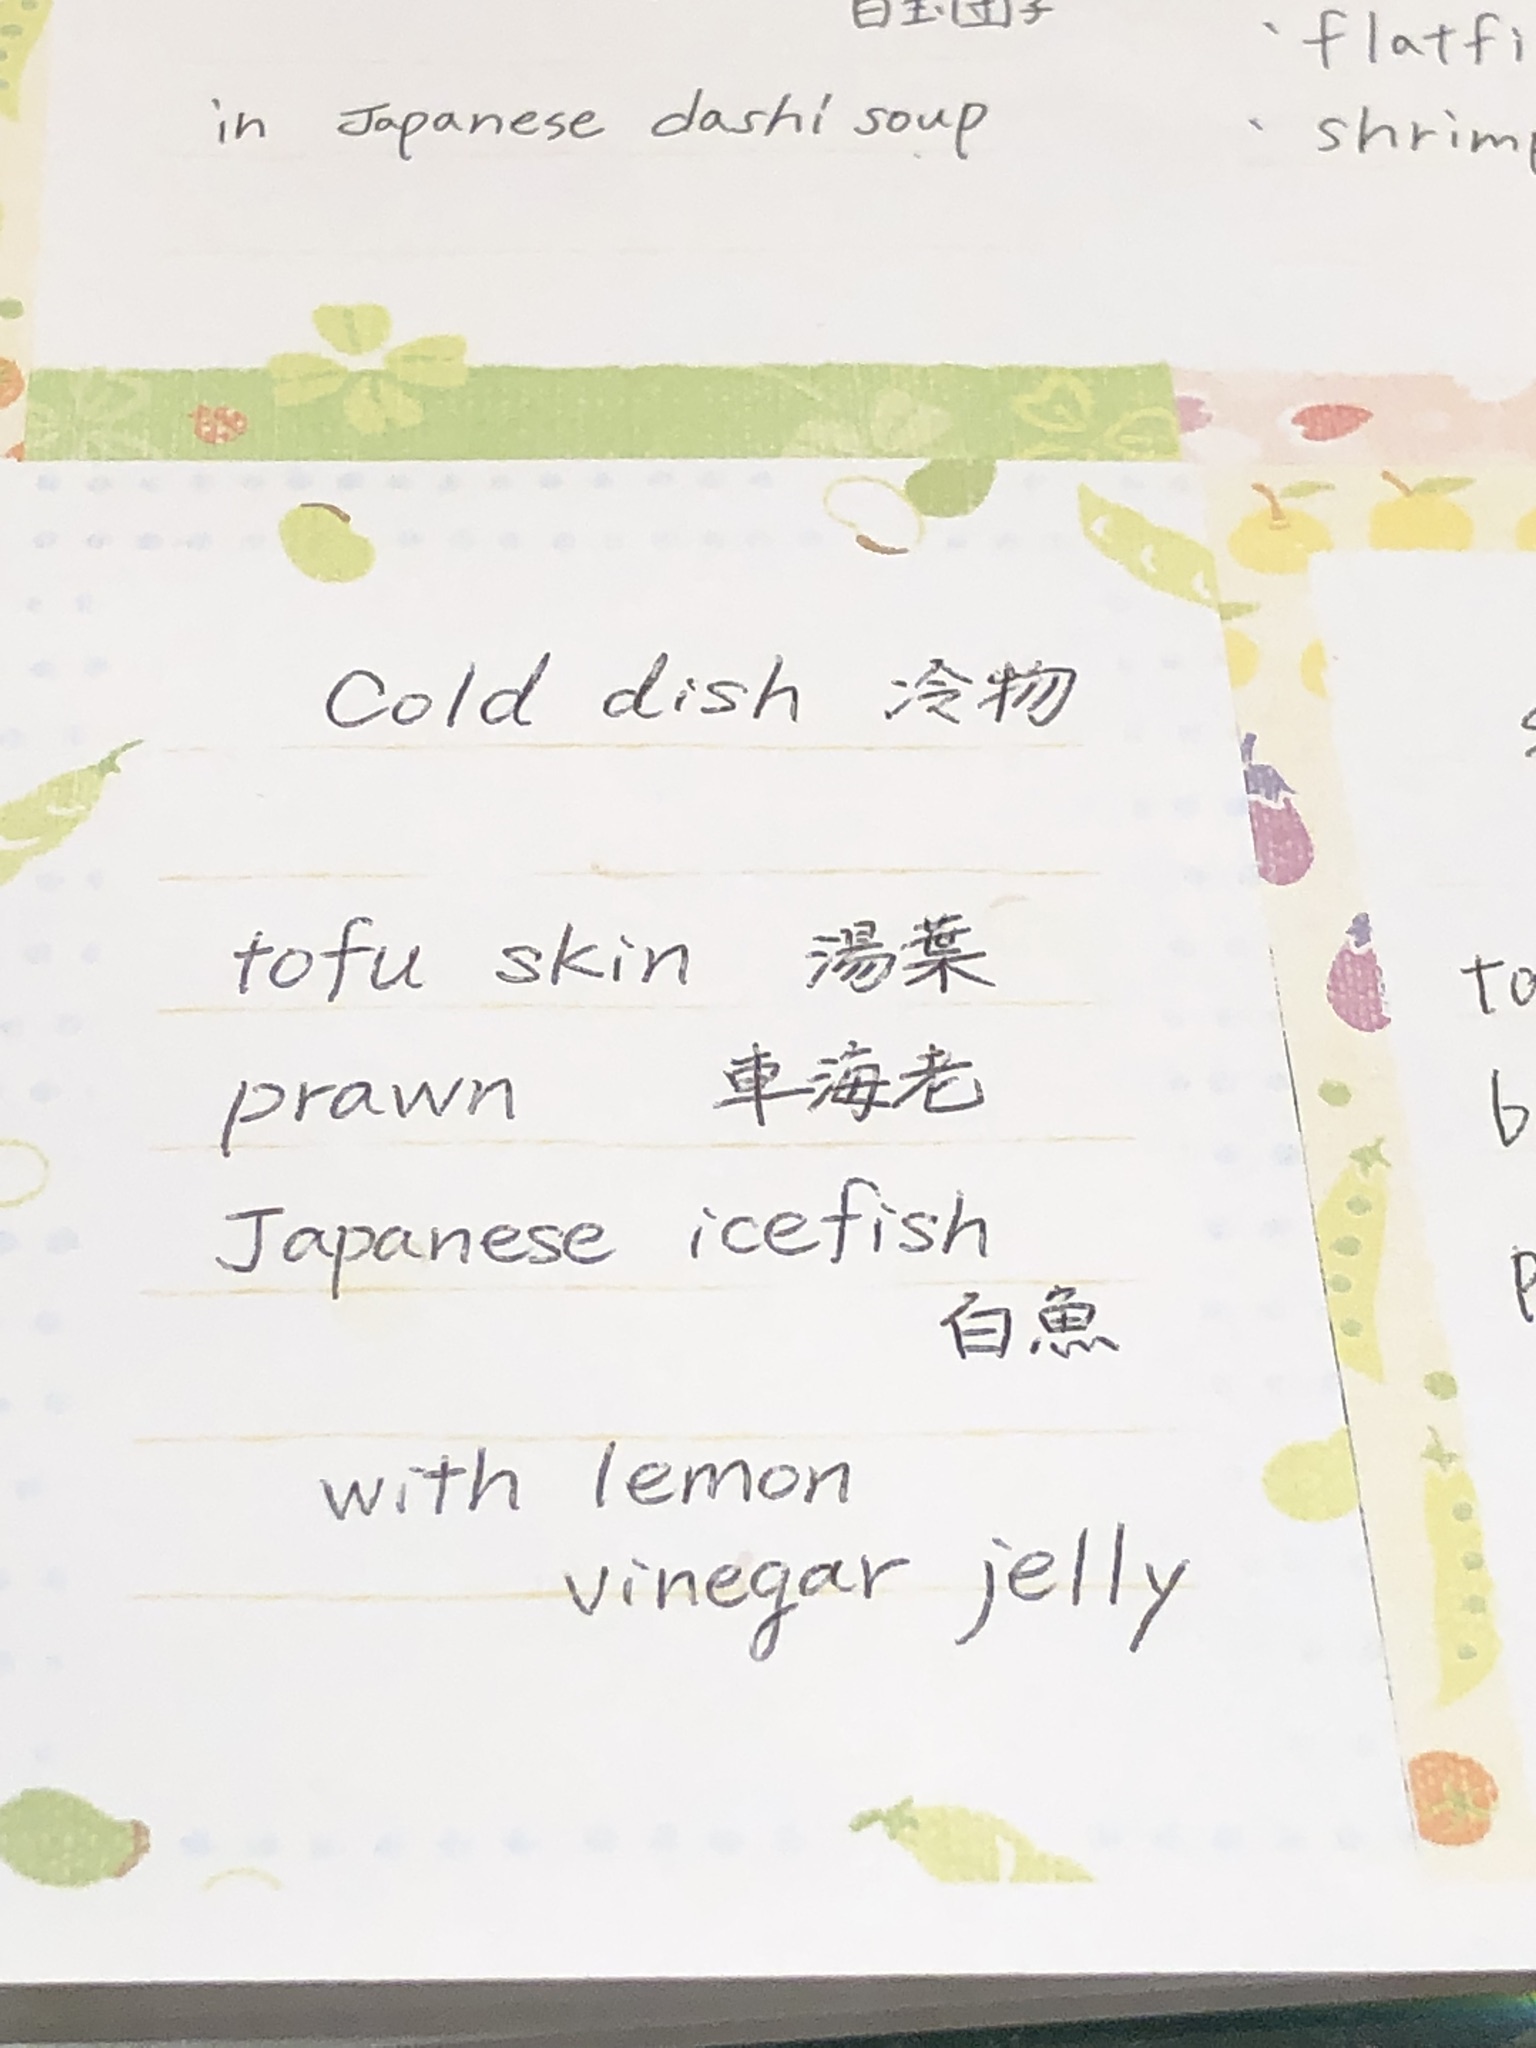 白玉団子
in Japanese dashi soup
、flatfi
、shrimp
Cold dish 冷物
tofu skin 湯葉
prawn 車海老
Japanese icefish
白魚
with lemon
vinegar jelly
to
b
p